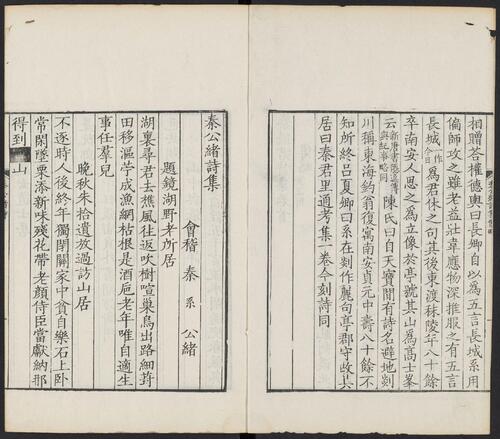 相贈答權德輿曰長卿自以為五言長城系用
偏師攻之雖老益壯韋應物深推服之有五言
長城作今日為君休之句其後東渡秣陵年八十餘
卒南安人思之為立像於亭號其山為高士峯
云新唐書隱逸傳與紀事略同陳氏曰自天寶閒有詩名避地剡
川稱東海釣翁復寓南安貞元中壽八十餘不
知所終呂夏卿曰系在剡作麗句亭郡守改其
居曰秦君里通考集一卷今刻詩同
秦公緒詩集
會稽 秦 系 公緒
題鏡湖野老所居
湖裏尋君去樵風往返吹樹喧巢鳥出路細葑
田移漚苧成漁網枯根是酒巵老年唯自適生
事任羣兒
晚秋朱拾遺放過訪山居
不逐時人後終年獨閉關家中貧自樂石上臥
常閑墜栗添新味殘花帶老顏侍臣當獻納那
得到山